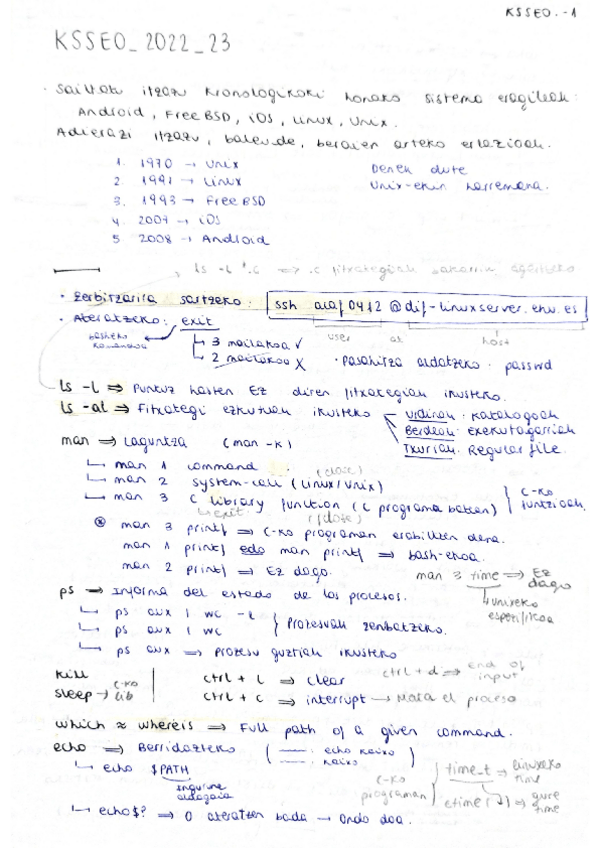 KSSEO.-1
KSSEO_2022_23
· Sailkatu itzazu kronologikoki honako sistema eragileak:
Android, FreeBSD, iOS, Linux, Unix.
Adierazi itzazu, baleude, beraien arteko erlazioak.
1. 1970 → Unix    Denek dute
2. 1991 → Linux    Unix-ekin harremana.
3. 1993 → FreeBSD
4. 2007 → iOS
5. 2008 → Android
ls -l *.c => .c fitxategiak bakarrik agertzeko
· Zerbitzarira sartzeko: ssh acaf0412@dif-linuxserver.ehu.es
· Ateratzeko: exit    user    at    host
basheko komandoa
↳ 3 mailakoa ✓
↳ 2 mailakoa X    · pasahitza aldatzeko · passwd
ls -l => Puntuz hasten Ez diren fitxategiak ikusteko.
ls -al => Fitxategi ezkutuak ikusteko    Urdinak: katalogoak
Berdeak: exekutagarriak
man => laguntza (man -k)    Txuriak: Regular file.
↳ man 1 command (date)
↳ man 2 system-call (Linux/Unix)
↳ man 3 C library function (C programa batean) } C-ko funtzioak.
exit    (date)
⊛ man 3 printf => C-ko programan erabiltzen dena.
man 1 printf edo man printf => bash-ekoa.
man 2 printf => Ez dago.    man 3 time => Ez dago
ps => Informa del estado de los procesos.    ↳ unixeko espezifikoa
↳ ps aux | wc -l } Prozesuak zenbatzeko.
↳ ps aux | wc
↳ ps aux => prozesu guztiak ikusteko
kill    ctrl + l => clear    ctrl + d => end of input
sleep → C-ko lib    ctrl + c => interrupt → Mata el proceso
which ≈ whereis => Full path of a given command.
echo => Berridazteko ( —— : echo kaixo
—— : kaixo )
↳ echo $PATH    time_t → Linuxeko time
Ingurune aldagaia    C-ko programan    ctime(↓) → gure time
↳ echo $? => 0 ateratzen bada → Ondo doa.